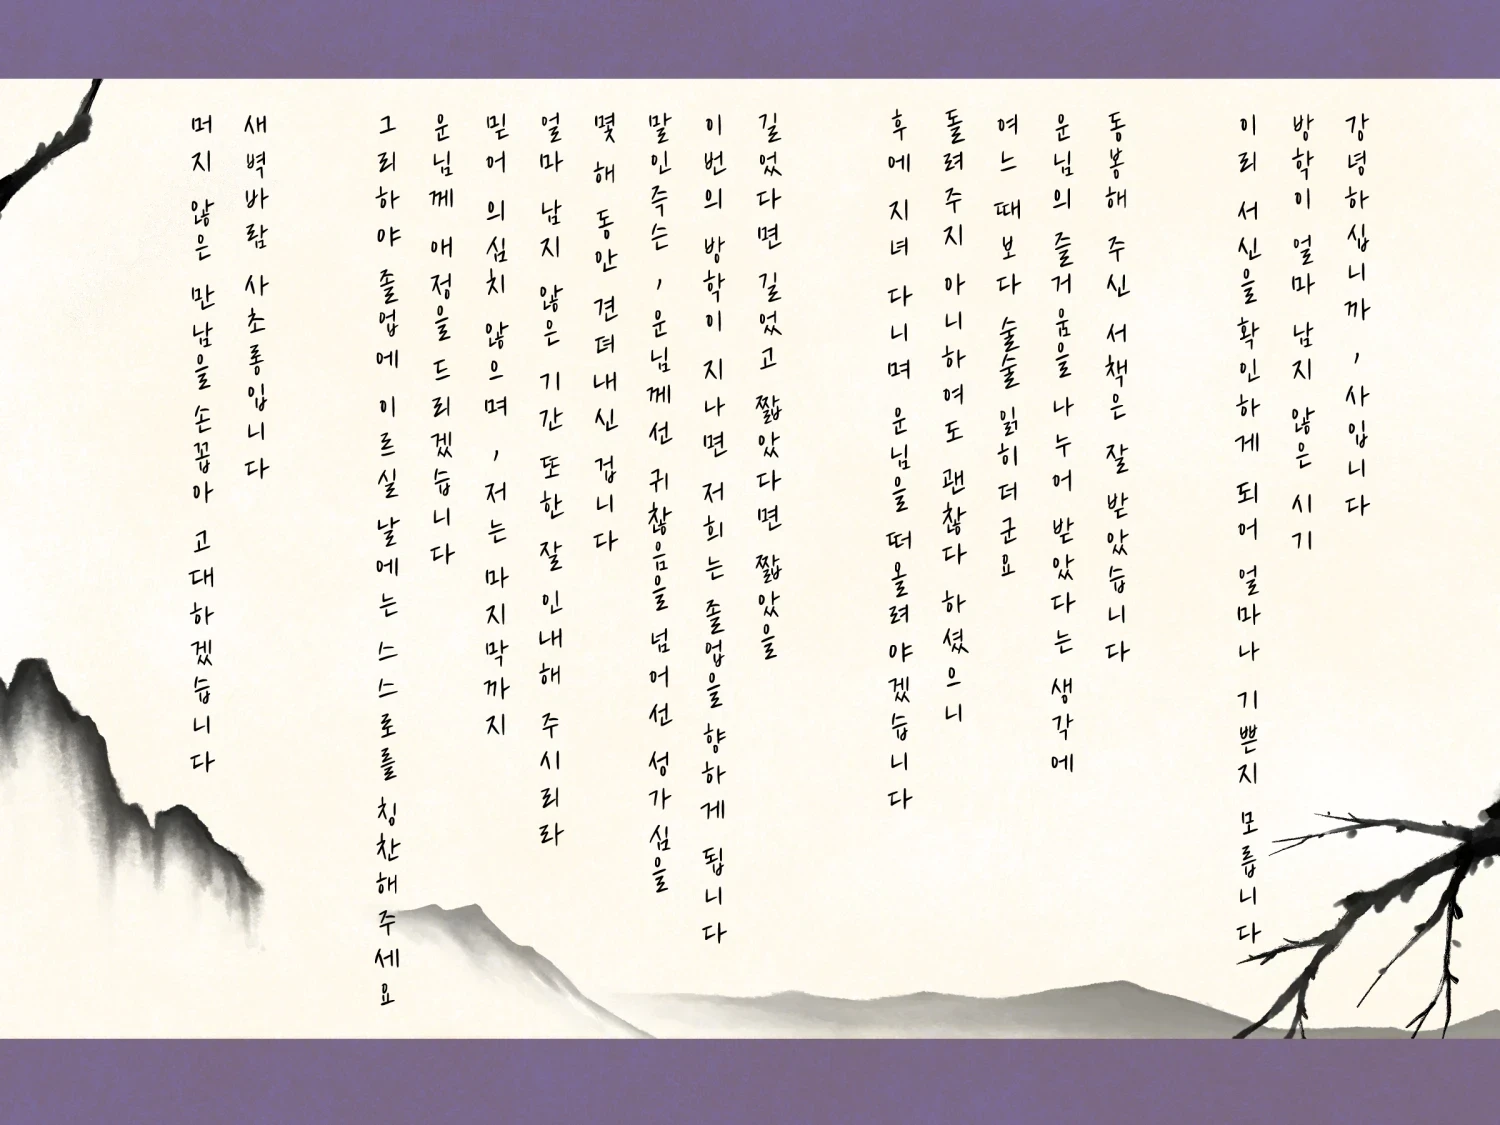 강녕하십니까, 사입니다
방학이 얼마 남지 않은 시기
이리 서신을 확인하게 되어 얼마나 기쁜지 모릅니다
동봉해 주신 서책은 잘 받았습니다
운님의 즐거움을 나누어 받았다는 생각에
여느 때보다 술술 읽히더군요
돌려주지 아니하여도 괜찮다 하셨으니
후에 지녀 다니며 운님을 떠올려야겠습니다
길었다면 길었고 짧았다면 짧았을
이번의 방학이 지나면 저희는 졸업을 향하게 됩니다
말인즉슨, 운님께선 귀찮음을 넘어선 성가심을
몇 해 동안 견뎌내신 겁니다
얼마 남지 않은 기간 또한 잘 인내해 주시리라
믿어 의심치 않으며, 저는 마지막까지
운님께 애정을 드리겠습니다
그리하야 졸업에 이르실 날에는 스스로를 칭찬해주세요
새벽바람 사초롱입니다
머지 않은 만남을 손꼽아 고대하겠습니다